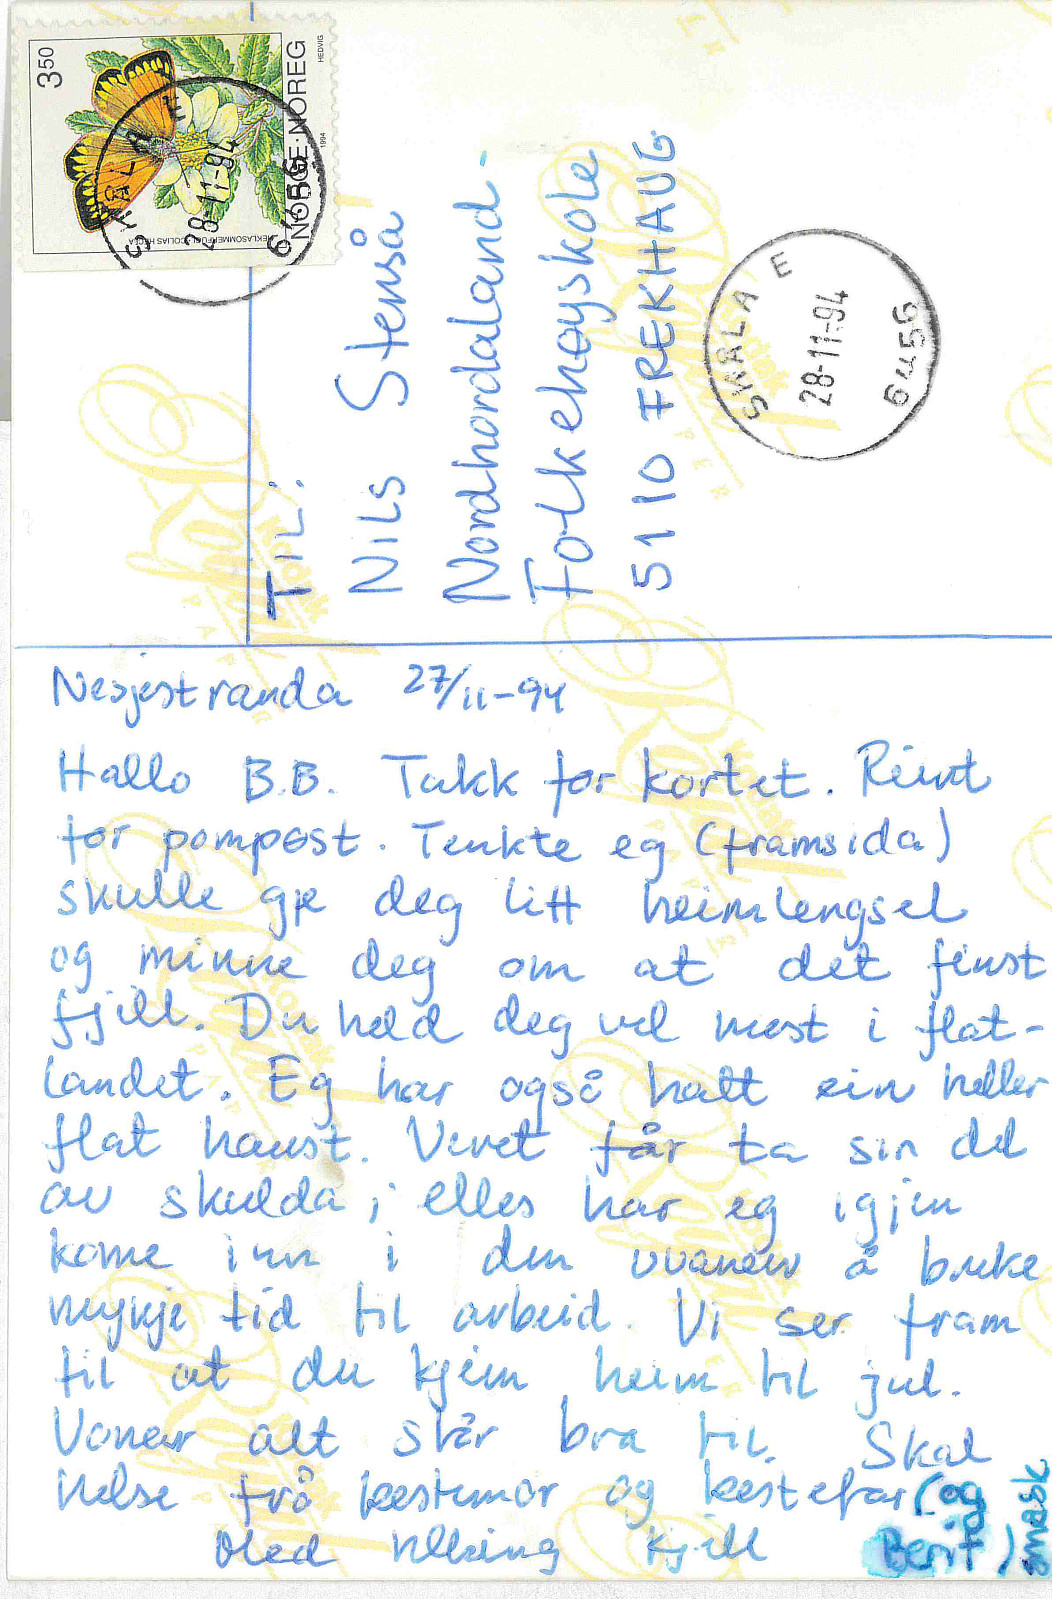 3.50
NORGE·NOREG
HEDVIG
1994
HEKLASOMMERFUGL COLIAS HECLA
SKÅLA E
28-11-94
6456
TIL:
Nils Stenså
Nordhordaland-
Folkehøyskole
5110 FREKHAUG
SKÅLA E
28-11-94
6456
Kodak
PAPER
Nesjestranda 27/11-94
Hallo B.B. Takk for kortet. Reint
for pompøst. Tenkte eg (framsida)
skulle gje deg litt heimlengsel
og minne deg om at det finst
fjell. Du held deg vel mest i flat-
landet. Eg har også hatt ein heller
flat haust. Veret får ta sin del
av skulda; elles har eg igjen
kome inn i den uvanen å bruke
mykje tid til arbeid. Vi ser fram
til at du kjem heim til jul.
Vonar alt står bra til. Skal
helse frå bestemor og bestefar (og
Berit) smask
Med helsing Kjell